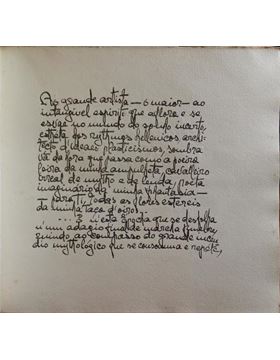 Ao grande artista — o maior — ao
intangivel espirito que aflora e se
esvae no mundo do sonho incerto,
estheta dos rythmos hellenicos, archi-
tecto d'ideaes plasticismos, sombra
vã da hora que passa como a poeira
loira da minha ampulheta, cavalleiro
irreal de mytho e de lenda, poeta
imaginario da minha phantasia —
— para ti, todas as flores estereis
da minha taça d'oiros.
.....E n'esta epocha que se desfolha
n'um adagio final de marcha funebre,
ouvindo ao compasso do grande incen-
dio mythologico que se consomma e repete,